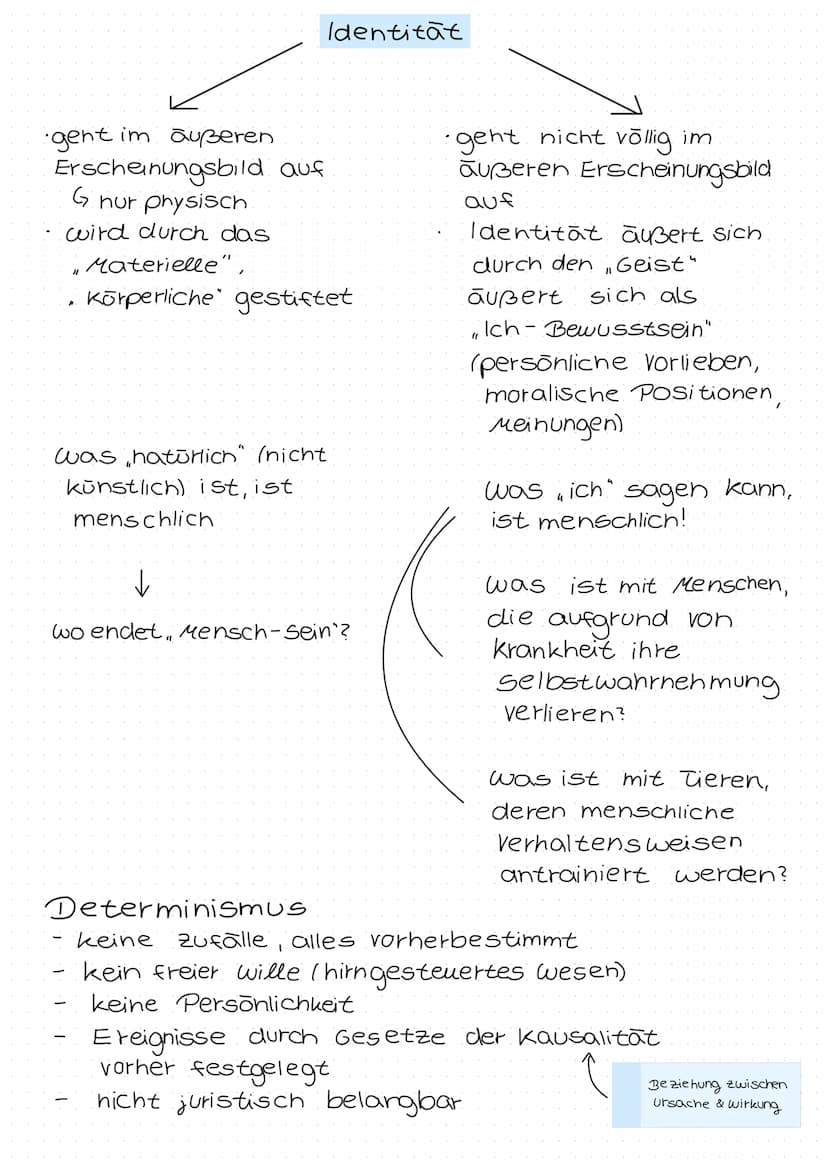 Identität
·geht im äußeren
Erscheinungsbild auf
↳ nur physisch
· wird durch das
„Materielle",
„Körperliche" gestiftet
was „natürlich" (nicht
künstlich) ist, ist
menschlich
↓
wo endet „Mensch-Sein"?
·geht nicht völlig im
äußeren Erscheinungsbild
auf
· Identität äußert sich
durch den „Geist"
äußert sich als
„Ich-Bewusstsein"
(persönliche Vorlieben,
moralische Positionen,
Meinungen)
was „ich" sagen kann,
ist menschlich!
was ist mit Menschen,
die aufgrund von
Krankheit ihre
Selbstwahrnehmung
verlieren?
was ist mit Tieren,
deren menschliche
Verhaltensweisen
antrainiert werden?
Determinismus
- keine Zufälle, alles vorherbestimmt
- kein freier Wille (hirngesteuertes Wesen)
- keine Persönlichkeit
- Ereignisse durch Gesetze der Kausalität
vorher festgelegt
- nicht juristisch belangbar
Beziehung zwischen
Ursache & Wirkung